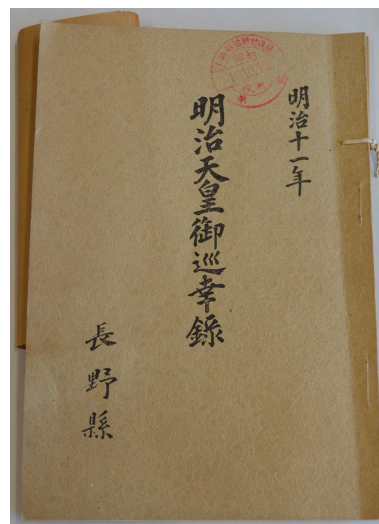 明治十一年
明治天皇御巡幸録
長野縣